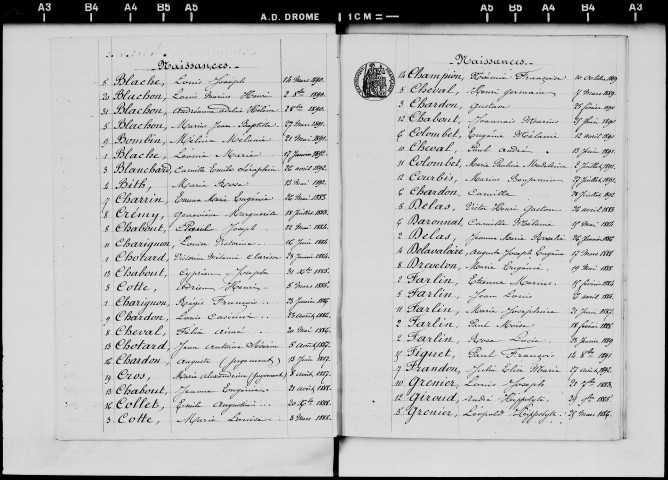 A3 B4 A4 B5 A5 A.D. DROME 1 CM = A5 B5 A4 B4 A3
Naissances.
8 Blache, Louis Joseph 14 Mars 1890.
20 Blachon, Louis Marius Henri 2 8bre 1890.
31 Blachon, Adélie Hélène 28 1890.
5 Blachon, Marius Jean Baptiste 27 Mars 1891.
9 Bombin, Méline Mélanie 21 Mai 1891.
1 Blache, Léonie Marie 17 Janvier 1892.
3 Blanchard, Camille Emile Séraphin 26 avril 1892.
4 Bith, Marie Rose 13 Mai 1892.
7 Charrin, Emma Marie Eugénie 26 Mai 1883
8 Crémy, Geneviève Marguerite 18 Juillet 1883.
8 Chabout, Joseph 22 Mai 1884.
11 Charignon, Louise Victorine 16 Juin 1884.
1 Cholard, Victorin Mélanie Clarisse 28 Janvier 1884.
13 Chabout, Cyprien Joseph 31 Xbre 1885.
3 Cotte, Adrien Henri 5 Mars 1885.
1 Charignon, Régis François 23 Janvier 1886
9 Chardon, Louis Casimir août 1886.
8 Cheval, Félix Aimé 20 Mai 1886.
13 Cholard, Jean Antoine 5 août 1887.
16 Chardon, Auguste (jugement) 13 Juin 1887.
19 Cros, Marie Alexandrine (jugement) 8 août 1887.
13 Chabout, Jeanne Eugénie 21 août 1888.
16 Collet, Emile Augustin 20 Xbre 1888.
3 Cotte, Marie Louise 3 Mars 1888.
Naissances.
14 Champion, Noémie Françoise 10 Octobre 1889
5 Cheval, Henri Germain 17 Mars 1889.
3 Chardon, Gustave 25 février 1890
12 Chabout, Joannais Maurius 1890
6 Colombet, Eugène Mélanie 12 avril 1891
10 Cheval, Paul André 13 Juin 1891.
11 Colombet, Marie Pauline Madeleine 2 Juillet 1891.
12 Courbis, Marius Bonaventure 27 Juillet 1891.
6 Chardon, Camille 28 Juillet 1892
5 Delas, Victor Henri Gaston 26 avril 1883
6 Daronnat, Camille Mélanie 17 Mai 1884
2 Delas, Jeanne Marie Rosalie 26 Janvier 1886
4 Delavalaire, Auguste Joseph Eugène 17 Mars 1888
8 Breveton, Marie Eugénie 19 Mai 1888
2 Farlin, Etienne Marius 17 février 1884
5 Farlin, Jean Louis 6 avril 1886
11 Farlin, Marie Joséphine 21 Juin 1887.
2 Farlin, Paul Moïse 18 février 1888
2 Farlin, Rosa Lucie 23 Janvier 1889
15 Fiquet, Paul François 14 8bre 1891
7 Frandon, Julie Elise Marie 27 août 1892
10 Grenier, Louis Joseph 21 7bre 1883.
12 Giroud, André Hippolyte 29 9bre 1885
5 Grenier, Léopold Hippolyte 25 Mars 1886.